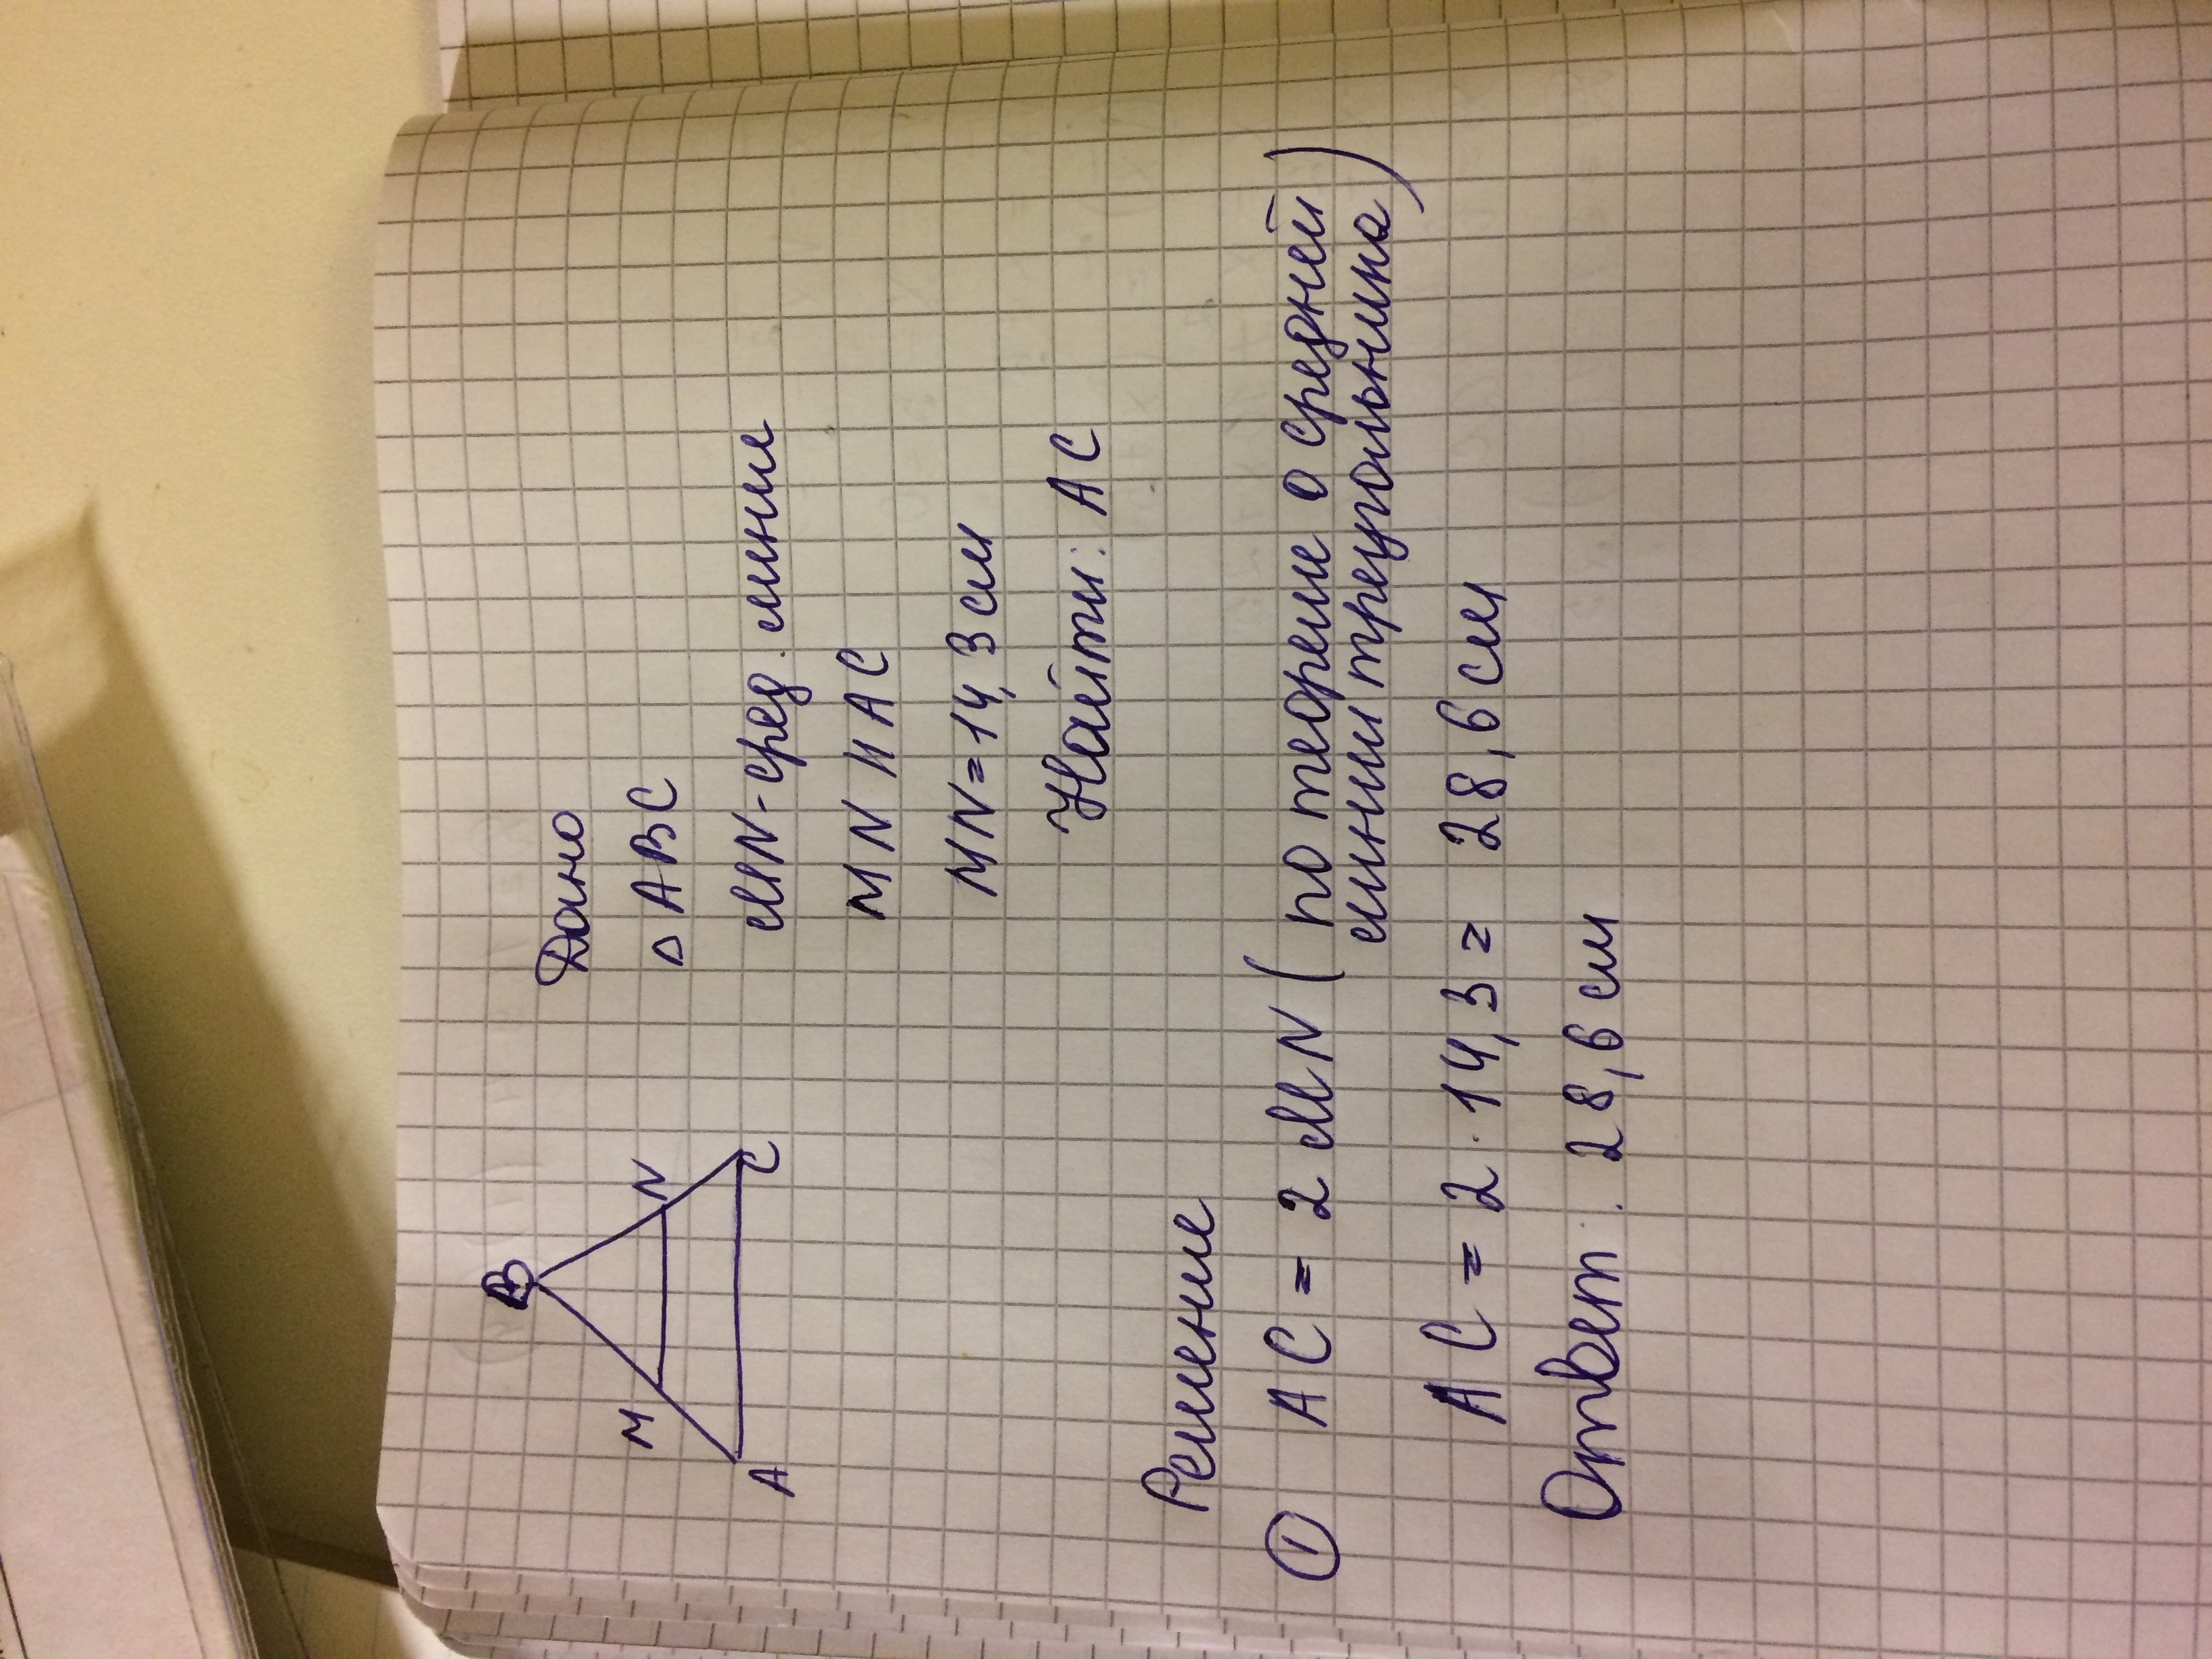 B
M N
A C
Дано
△ABC
MN-сред. линие
MN II AC
MN=14,3 см
Найти: AC
Решение
① AC = 2 MN (по теореме о средней
линии треугольника)
AC = 2 · 14,3 = 28,6 см
Ответ: 28,6 см